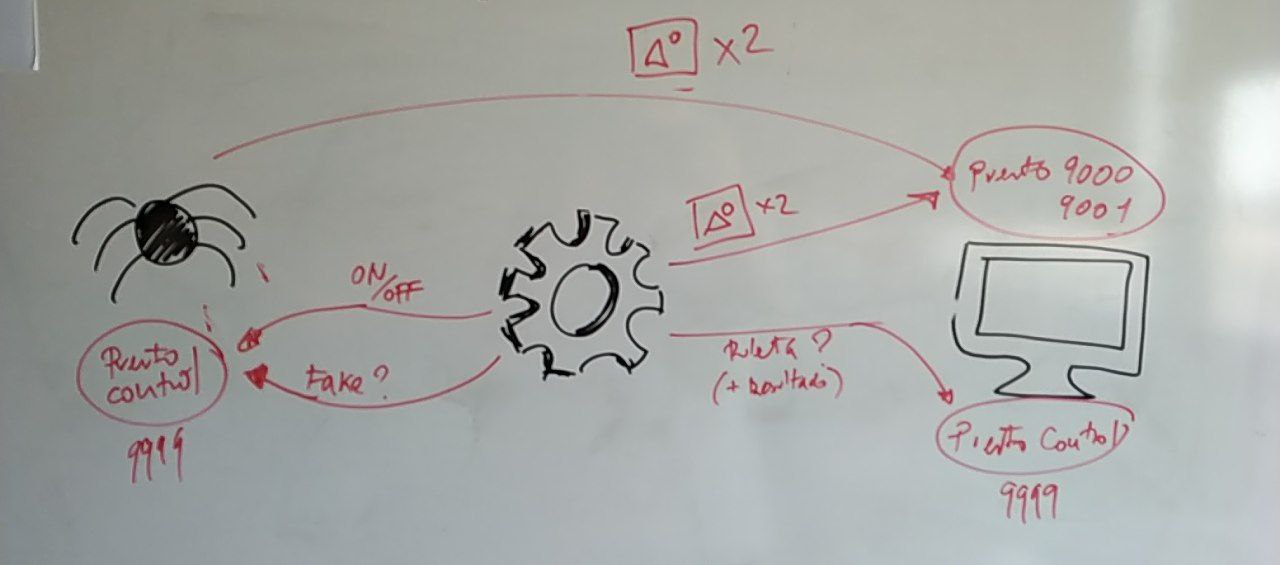 x2
Puerto 9000
9001
x2
ON/OFF
Puerto
control
Fake?
Ruleta?
(+ Resultado)
9999
Puerto Control
9999